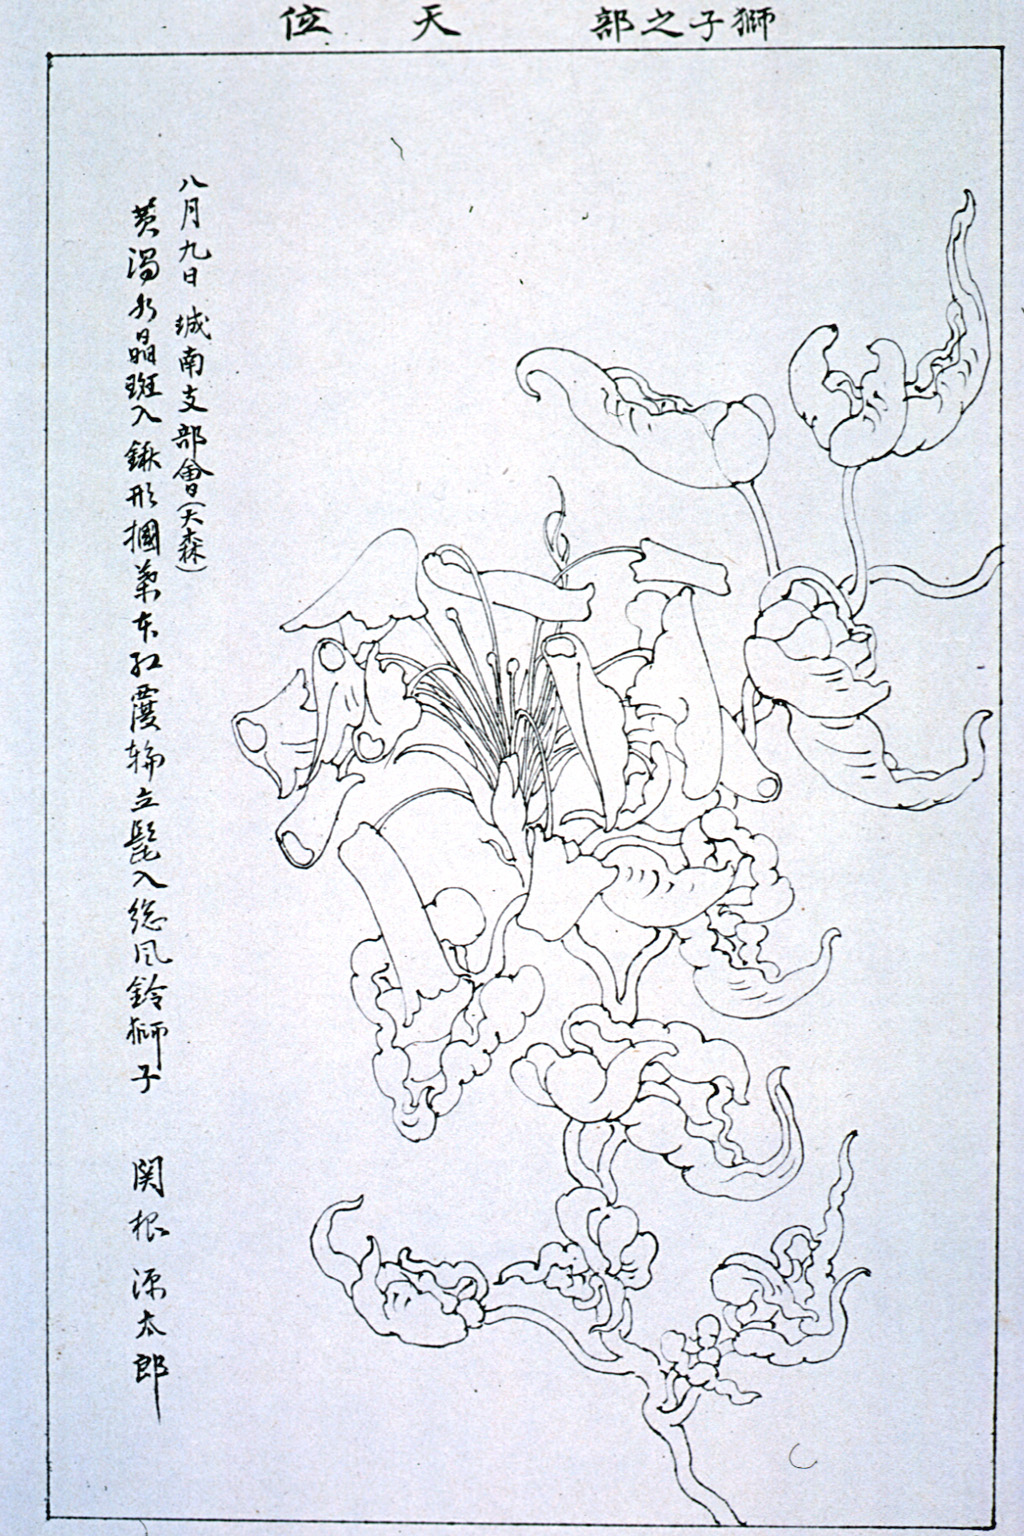 獅子之部　天位
八月九日 城南支部會(大森)
黄渦水晶斑入鍬形摑葉本紅覆輪立髭入総風鈴獅子　関根源太郎